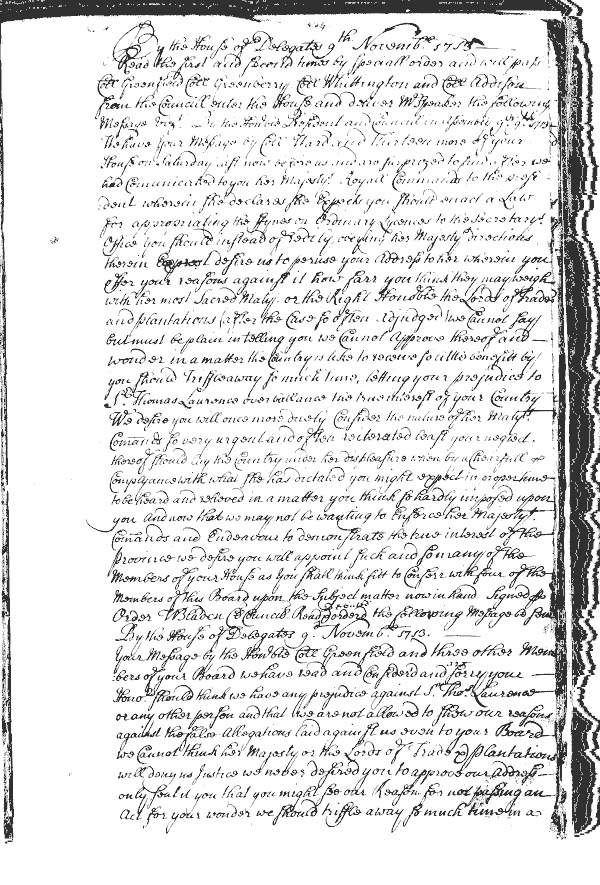 By the House of Delegates 9th Novembr. 1713
Read the first and second times by speciall order and will pass
Coll Greenfield Coll Greenberry Coll Whittington and Coll Addison
from the Councill enter the House and deliver Mr. Speaker the following
Message Vizt. By the Honble President and Councill in Assembly 9br 9th 1713
We have your Message by Coll Ward and thirteen more of your
House on Saturday last now before us and are surprized to find after we
had Comunicated to you her Majestys. Royall Commands to the presi
dent wherein she declares she Expects you should enact a Law
for appropriating the ffynes on Ordinary Lycences to the Secretarys.
Office you should instead of redily obeying her Majestys directions
therein desire us to peruse your Address to her wherein you
offer your reasons against it how farr you think they may weigh
with her most Sacred Maty. or the Right Honoble the Lords of Trade
and plantations (after the Case so often adjudged) we cannot say
but must be plain in telling you we Cannot approve thereof and
wonder in a matter the Country is like to receive so little benefitt by
you should Triffle away so much time, letting your prejudice to
Sr. Thomas Laurence overballance the true interest of your Country
We desire you will once more duely Consider the nature of her Matys.
Comands so very urgent and often reiterated least your neglect
thereof should lay the Country under her displeasure when by a Cheirfull
Complyance with what she has dictated you might expect in proper time
to be heard and relieved in a matter you think so hardly imposed upon
you And now that we may not be wanting to Enforce her Majestys.
Comands and Endeavour to demonstrate the true interest of the
Province we desire you will appoint such and so many of the
Members of your House as You shall think fitt to Conferr with four of the
Members of this Board upon the Subject matter now in hand Signed p
Order W Bladen Cl Councill Read & orderd the following Message be sent
By the House of Delegates 9. Novembr. 1713.
Your Message by the Honble Coll Greenfield and three other Mem
bers of your Board we have read and Considerd and sorry your
Honors. should think we have any prejudice against Sr. Thos. Laurence
or any other person and that we are not allowed to shew our reasons
against the false Allegations laid against us even to your Board
we Cannot think her Majesty or the Lords of Trade & Plantations
will deny us Justice we never desired you to approve our address
only sent it you that you might see our Reason for not passing an
Act for your wonder we should triffle away so much time in a